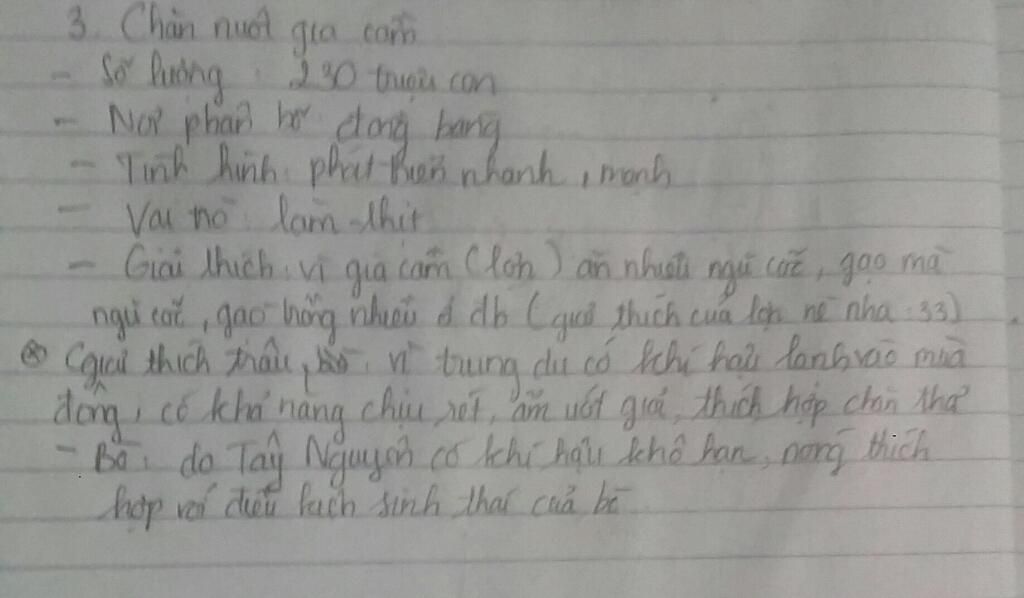 3. Chăn nuôi gia cầm
- Số lượng : 230 triệu con
- Nơi phân bố đồng bằng
- Tình hình: phát triển nhanh, mạnh
- Vai trò: làm thịt
- Giải thích: vì gia cầm (lợn) ăn nhiều ngũ cốc, gạo mà
ngũ cốc, gạo trồng nhiều ở đb (giải thích của lợn nè nha :33)
⊗ (giải thích trâu, bò: vì trung du có khí hậu lạnh vào mùa
đông, có khả năng chịu rét, ẩm ướt giỏi, thích hợp chăn thả
- Bò: do Tây Nguyên có khí hậu khô hạn, nóng thích
hợp với điều kiện sinh thái của bò